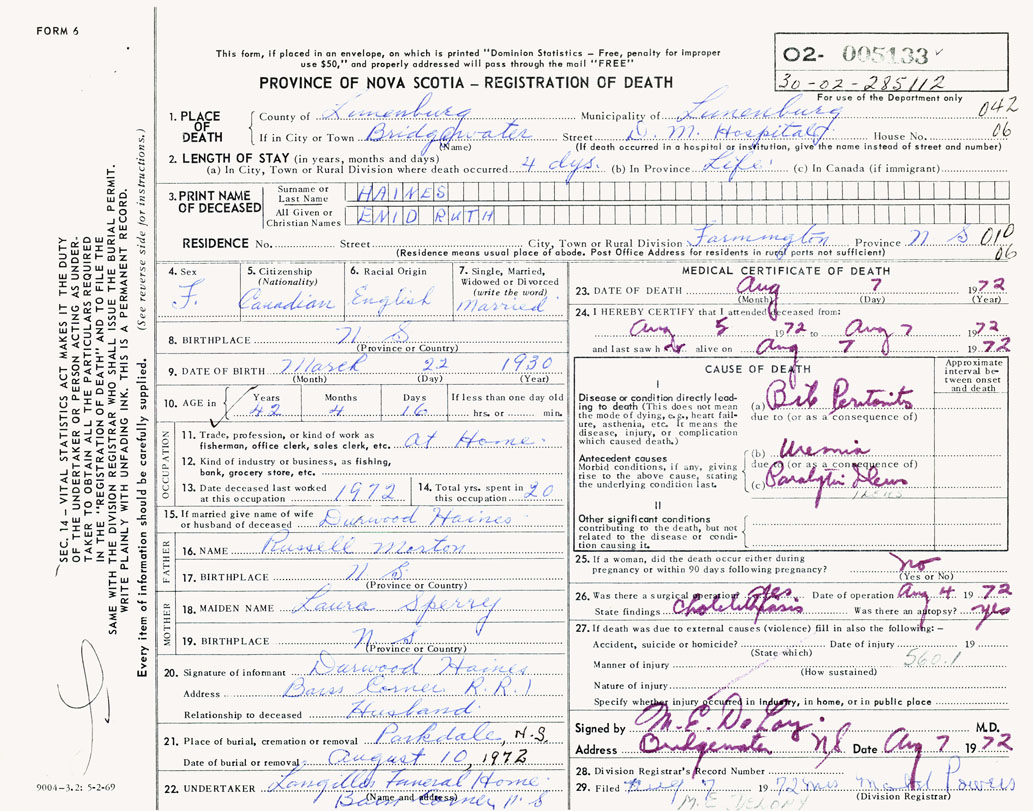 FORM 6
This form, if placed in an envelope, on which is printed "Dominion Statistics – Free, penalty for improper
use $50," and properly addressed will pass through the mail "FREE"
PROVINCE OF NOVA SCOTIA – REGISTRATION OF DEATH
02- 005133
30-02-285112
For use of the Department only
1. PLACE OF DEATH
County of Lunenburg Municipality of Lunenburg 042
If in City or Town Bridgewater Street D. M. Hospital House No. 06
(Name) (If death occurred in a hospital or institution, give the name instead of street and number)
2. LENGTH OF STAY (in years, months and days)
(a) In City, Town or Rural Division where death occurred 4 dys. (b) In Province Life (c) In Canada (if immigrant)
3. PRINT NAME OF DECEASED
Surname or Last Name HAINES
All Given or Christian Names ENID RUTH
RESIDENCE No. Street City, Town or Rural Division Farmington Province N S 010
(Residence means usual place of abode. Post Office Address for residents in rural parts not sufficient) 06
4. Sex F.
5. Citizenship (Nationality) Canadian
6. Racial Origin English
7. Single, Married, Widowed or Divorced (write the word) Married
8. BIRTHPLACE N S
(Province or Country)
9. DATE OF BIRTH March 22 1930
(Month) (Day) (Year)
10. AGE in Years 42 Months 4 Days 16 If less than one day old hrs. or min.
OCCUPATION
11. Trade, profession, or kind of work as fisherman, office clerk, sales clerk, etc. at Home
12. Kind of industry or business, as fishing, bank, grocery store, etc.
13. Date deceased last worked at this occupation 1972
14. Total yrs. spent in this occupation 20
15. If married give name of wife or husband of deceased Durwood Haines
FATHER
16. NAME Russell Morton
17. BIRTHPLACE N S.
(Province or Country)
MOTHER
18. MAIDEN NAME Laura Sperry
19. BIRTHPLACE N. S
(Province or Country)
20. Signature of informant Durwood Haines
Address Barss Corner R.R.1
Relationship to deceased Husband
21. Place of burial, cremation or removal Parkdale, N.S.
Date of burial or removal August 10, 1972
22. UNDERTAKER Longilles Funeral Home
(Name and address) Barss Corner N. S
MEDICAL CERTIFICATE OF DEATH
23. DATE OF DEATH Aug 7 1972
(Month) (Day) (Year)
24. I HEREBY CERTIFY that I attended deceased from:
Aug 5 1972 to Aug 7 1972
and last saw her alive on Aug 7 1972
CAUSE OF DEATH
Approximate interval between onset and death
I
Disease or condition directly leading to death (This does not mean the mode of dying, e.g., heart failure, asthenia, etc. It means the disease, injury, or complication which caused death.)
(a) Bile Peritonitis
due to (or as a consequence of)
Antecedent causes
Morbid conditions, if any, giving rise to the above cause, stating the underlying condition last.
(b) Uremia
due to (or as a consequence of)
(c) Paralytic Ileus
ILEUS
II
Other significant conditions contributing to the death, but not related to the disease or condition causing it.
25. If a woman, did the death occur either during pregnancy or within 90 days following pregnancy? no
(Yes or No)
26. Was there a surgical operation? yes Date of operation Aug 4 1972
State findings cholelithiasis Was there an autopsy? yes
27. If death was due to external causes (violence) fill in also the following: –
Accident, suicide or homicide? Date of injury 19
(State which)
Manner of injury 560.1
(How sustained)
Nature of injury
Specify whether injury occurred in industry, in home, or in public place
Signed by M. E. DeLory M.D.
Address Bridgewater N S Date Aug 7 1972
28. Division Registrar's Record Number
29. Filed Aug 7 1972 Mrs Mabel Powers
M. E. DELORY (Division Registrar)
SEC. 14 – VITAL STATISTICS ACT MAKES IT THE DUTY
OF THE UNDERTAKER OR PERSON ACTING AS UNDERTAKER
TO OBTAIN ALL THE PARTICULARS REQUIRED
IN THE "REGISTRATION OF DEATH" AND TO FILE THE
SAME WITH THE DIVISION REGISTRAR WHO SHALL ISSUE THE BURIAL PERMIT.
WRITE PLAINLY WITH UNFADING INK. THIS IS A PERMANENT RECORD.
Every item of information should be carefully supplied. (See reverse side for instructions.)
9004–3.2: 5-2-69